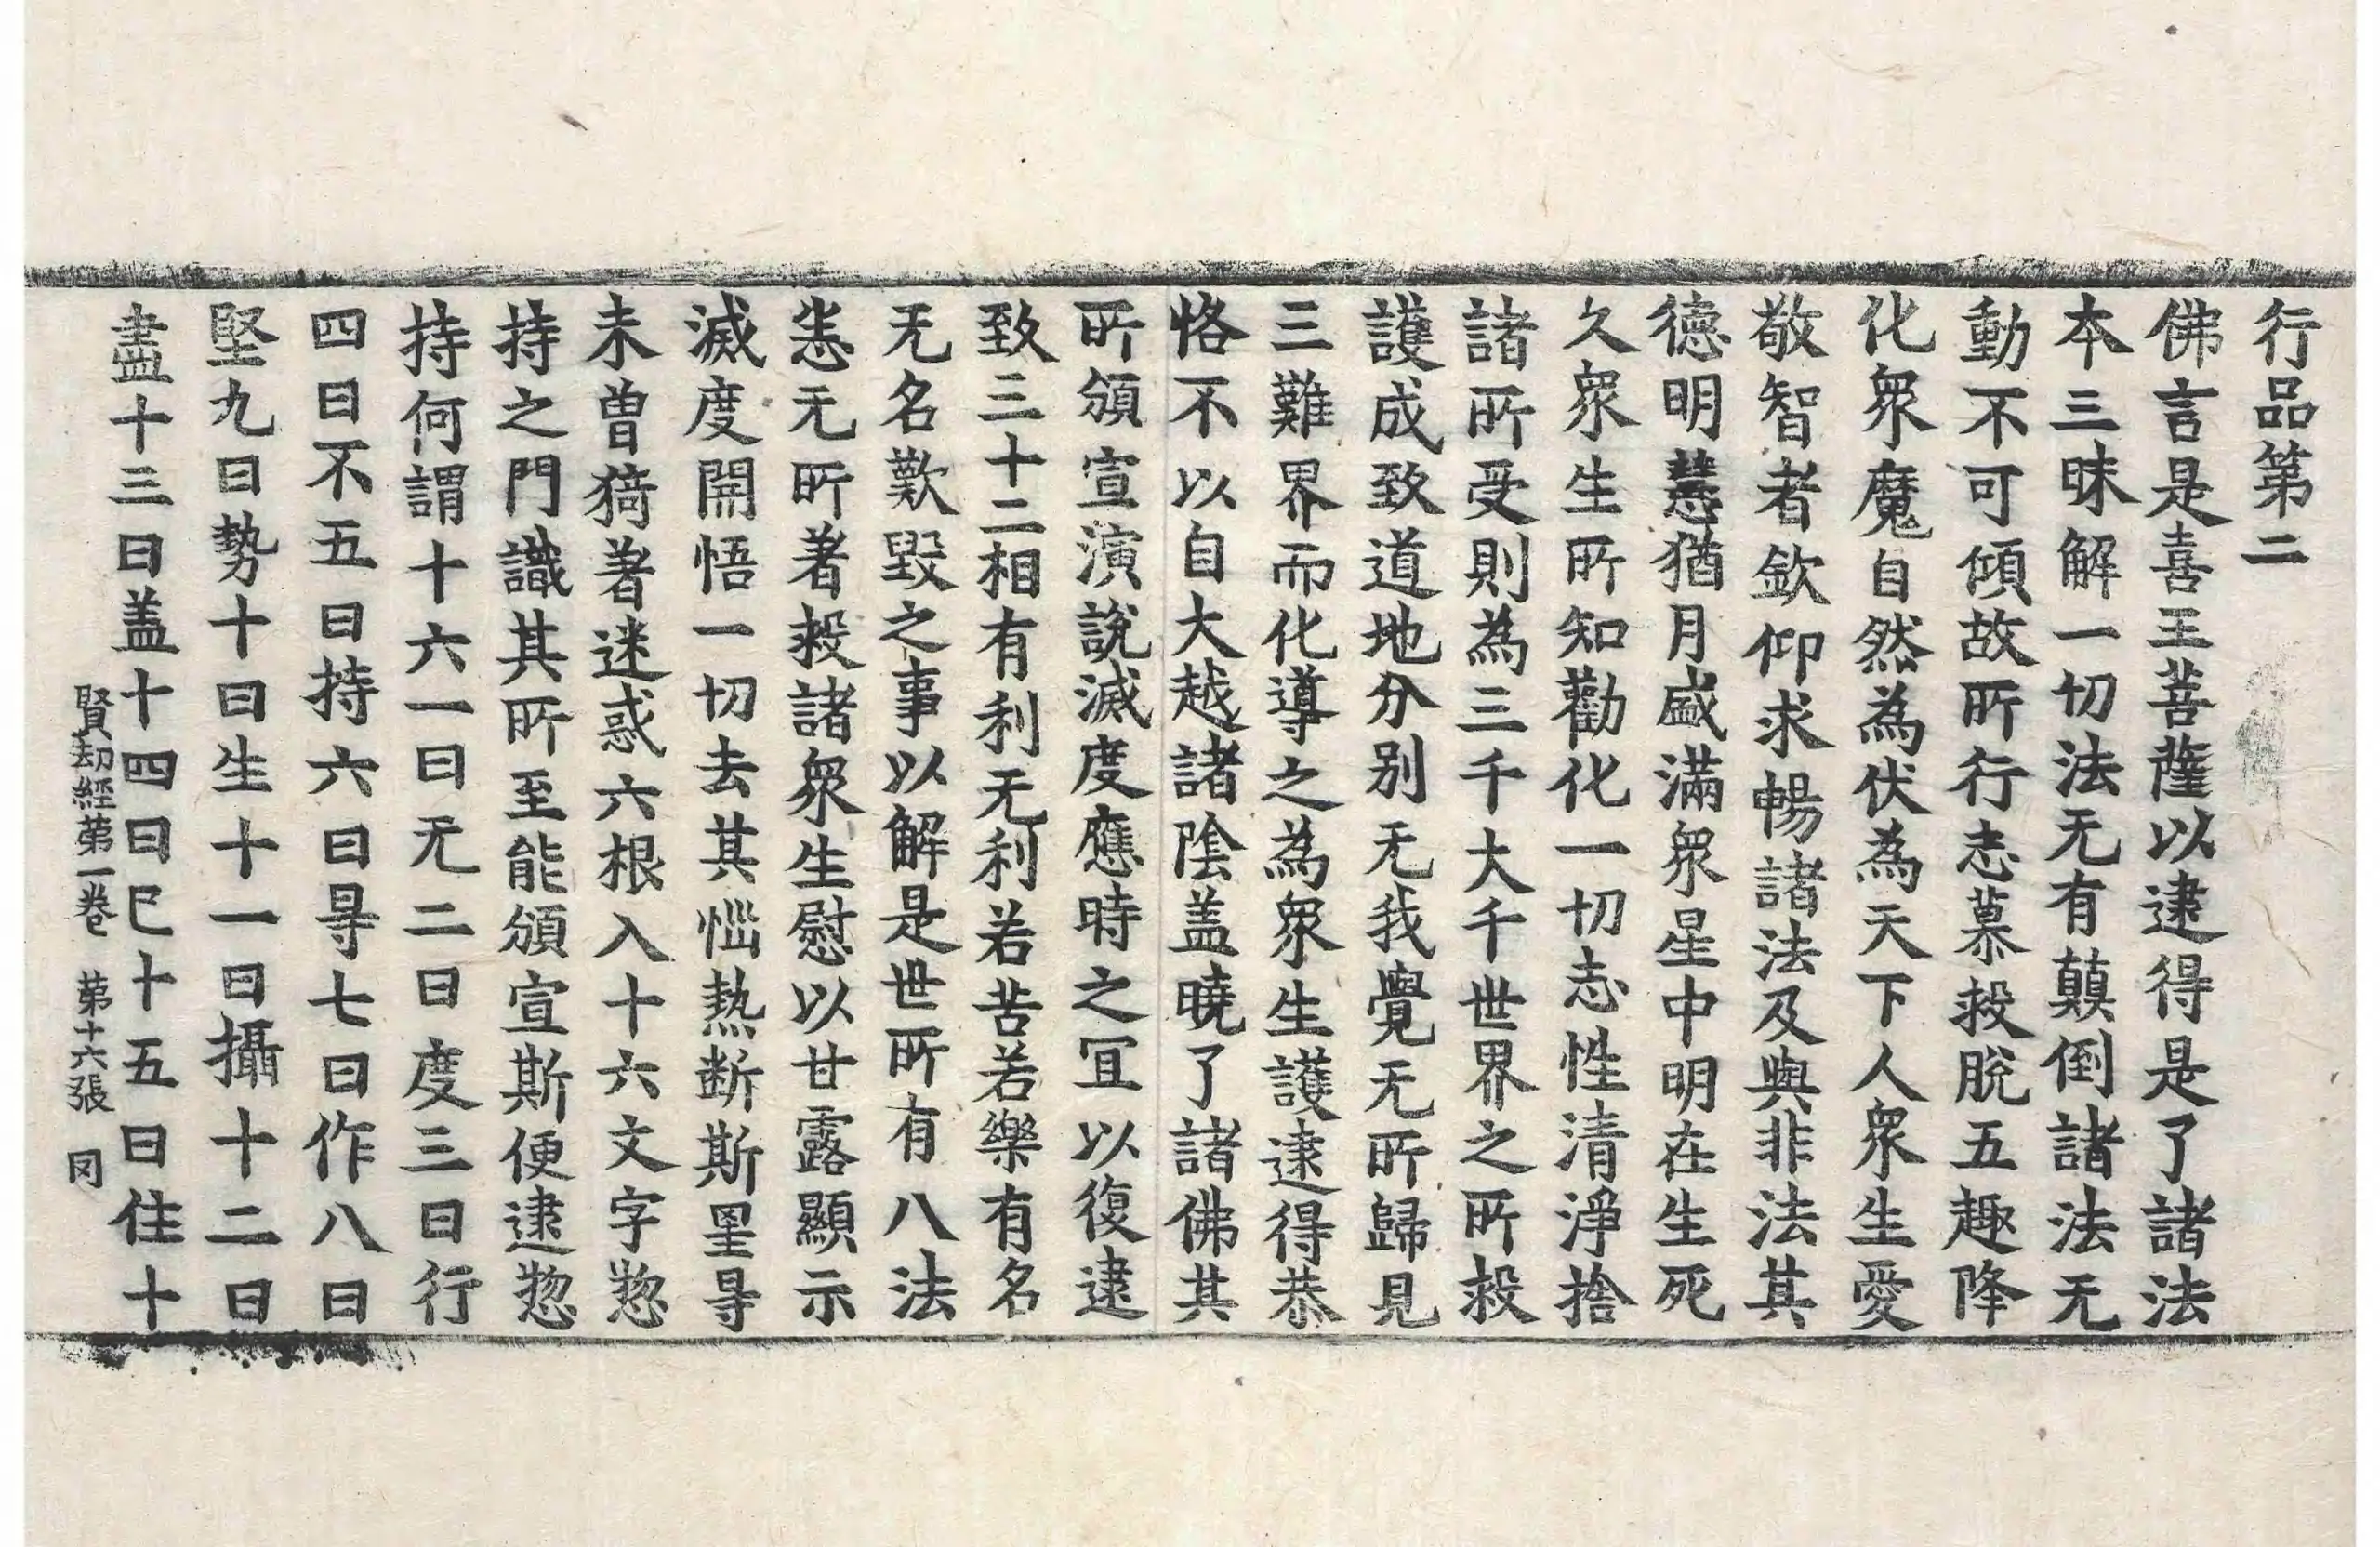 行品第二
佛言是喜王菩薩以逮得是了諸法
本三昧解一切法无有顛倒諸法无
動不可傾故所行志慕救脫五趣降
化衆魔自然為伏為天下人衆生愛
敬智者欽仰求暢諸法及與非法其
德明慧猶月盛滿衆星中明在生死
久衆生所知勸化一切志性清淨捨
諸所受則為三千大千世界之所救
護成致道地分别无我覺无所歸見
三難界而化導之為衆生護逮得恭
恪不以自大越諸陰盖曉了諸佛其
所頒宣演說滅度應時之冝以復逮
致三十二相有利无利若苦若樂有名
无名歎毀之事以解是世所有八法
恙无所著救諸衆生慰以甘露顯示
滅度開悟一切去其惱熱断斯罣㝵
未曾猗著迷惑六根入十六文字惣
持之門識其所至能頒宣斯便逮惣
持何謂十六一曰无二曰度三曰行
四曰不五曰持六曰㝵七曰作八曰
堅九曰勢十曰生十一曰攝十二曰
盡十三曰盖十四曰已十五曰住十
賢劫經第一卷 第十六張 冈